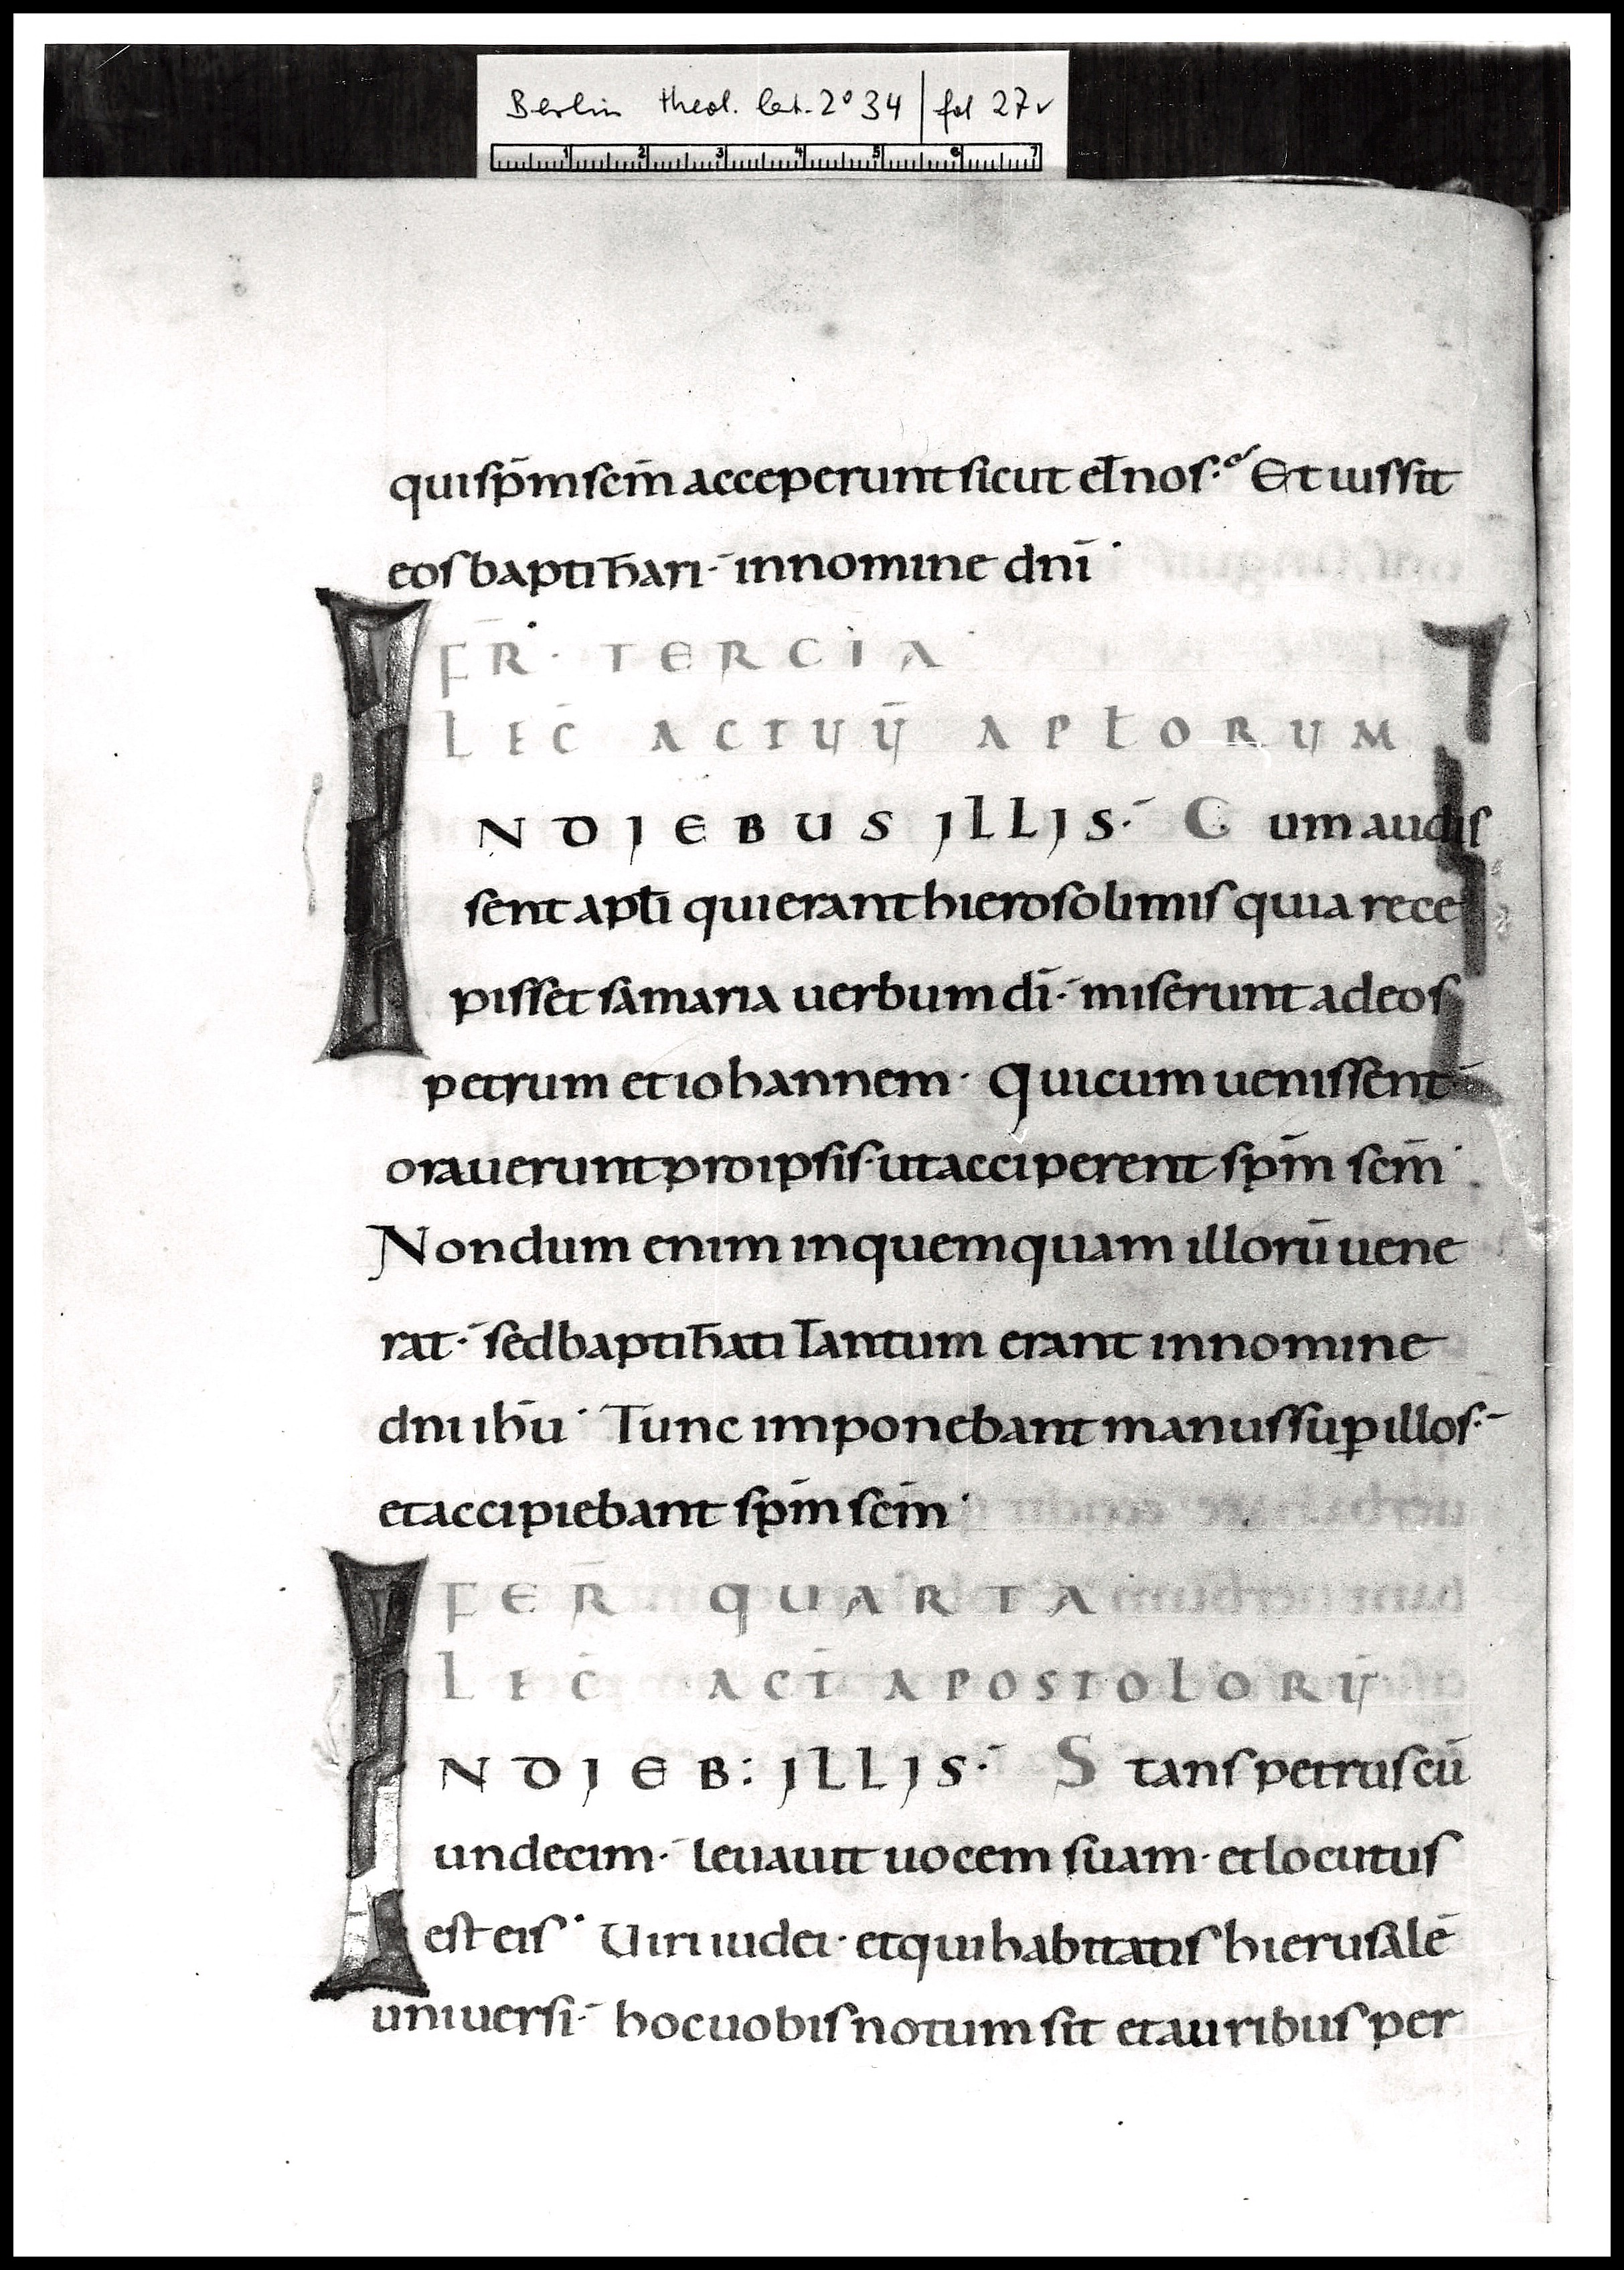 Berlin theol. lat. 2° 34 | fol 27v
1 2 3 4 5 6 7
qui sp̄m sc̄m acceperunt sicut et nos. Et iussit
eos baptizari· in nomine dn̄i·
FR̄· TERCIA
LEC̄ ACTUŪ APŁORUM
IN DIEBUS ILLIS· Cum audis
sent apłi qui erant hierosolimis quia rece
pisset samaria uerbum dī· miserunt ad eos
petrum et iohannem· Qui cum uenissent
orauerunt pro ipsis· ut acciperent sp̄m sc̄m·
Nondum enim in quemquam illorū uene
rat· sed baptizati tantum erant in nomine
dn̄i ih̄u· Tunc imponebant manus sup̱ illos·
et accipiebant sp̄m sc̄m·
FER̄ QUARTA
LEC̄ ACT̄ APOSTOLORŪ
IN DIEB: ILLIS· Stans petrus cū
undecim· leuauit uocem suam· et locutus
est eis· Uiri iudei· et qui habitatis hierusalē
uniuersi· hoc uobis notum sit et auribus per